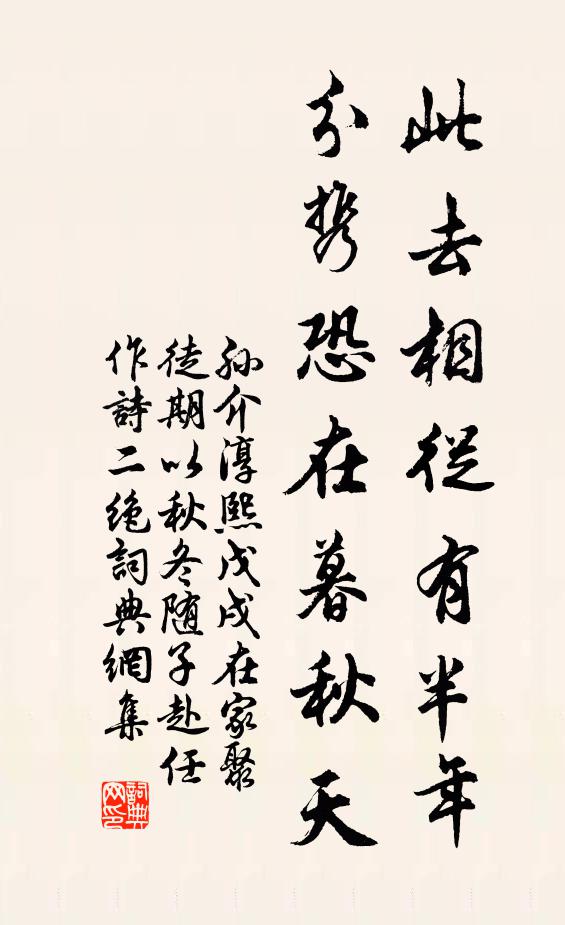 此去相從有半年
分携恐在暮秋天
孙介淳熙戊戌在家聚
徒期以秋冬随子赴任
作詩二绝詞典網集
詞典网印